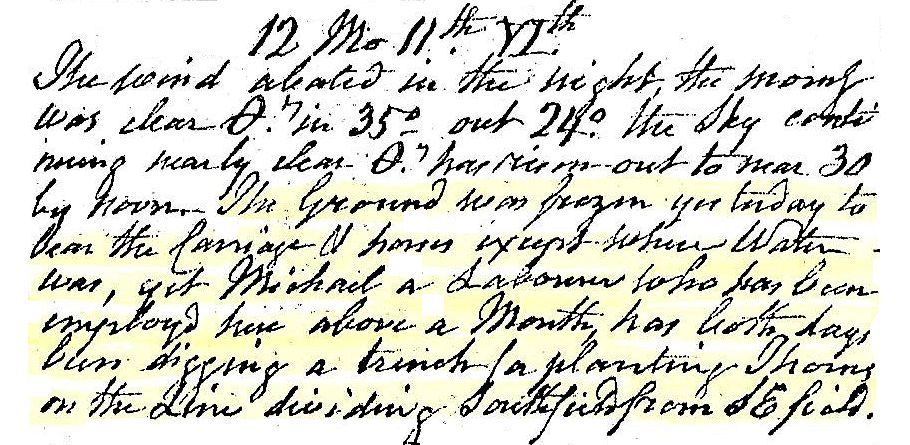 12 Mo 11th. VIth
The wind abated in the night, the morng
was clear θ.r in 35° out 24°. the Sky conti
nuing nearly clear θ.r has risen out to near 30
by noon. The Ground was frozen yesterday to
bear the Carriage & horses except where Water
was, yet Michael a Labourer who has been
employ'd here above a Month, has both days
been digging a trench for planting Thorns
on the Line dividing Southfield from SE field.